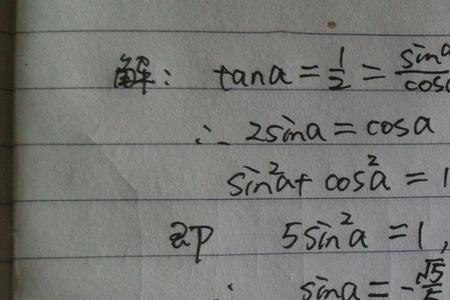 解: tana = 1/2 = sina/cosa
∴ 2sina = cosa
sin²a + cos²a = 1
即 5sin²a = 1,
∴ sina = -√5/5